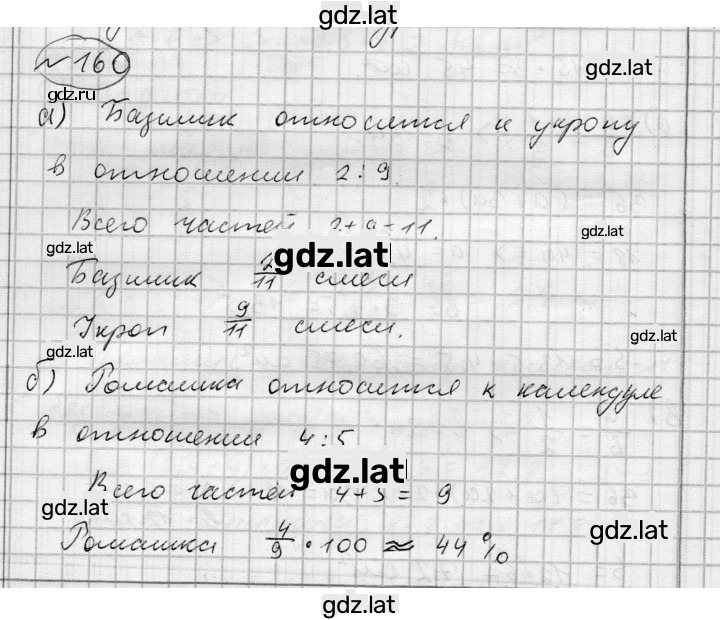 gdz.lat
№160
gdz.lat
gdz.ru
а) Базилик относится к укропу
в отношении 2:9.
Всего частей 2+9=11.
gdz.lat
gdz.lat
gdz.lat
Базилик 2/11 смеси
Укроп 9/11 смеси.
gdz.lat
gdz.lat
б) Ромашка относится к календуле
в отношении 4:5
gdz.lat
Всего частей 4+5=9
gdz.lat
gdz.lat
Ромашка 4/9 • 100 ≈ 44%
gdz.lat